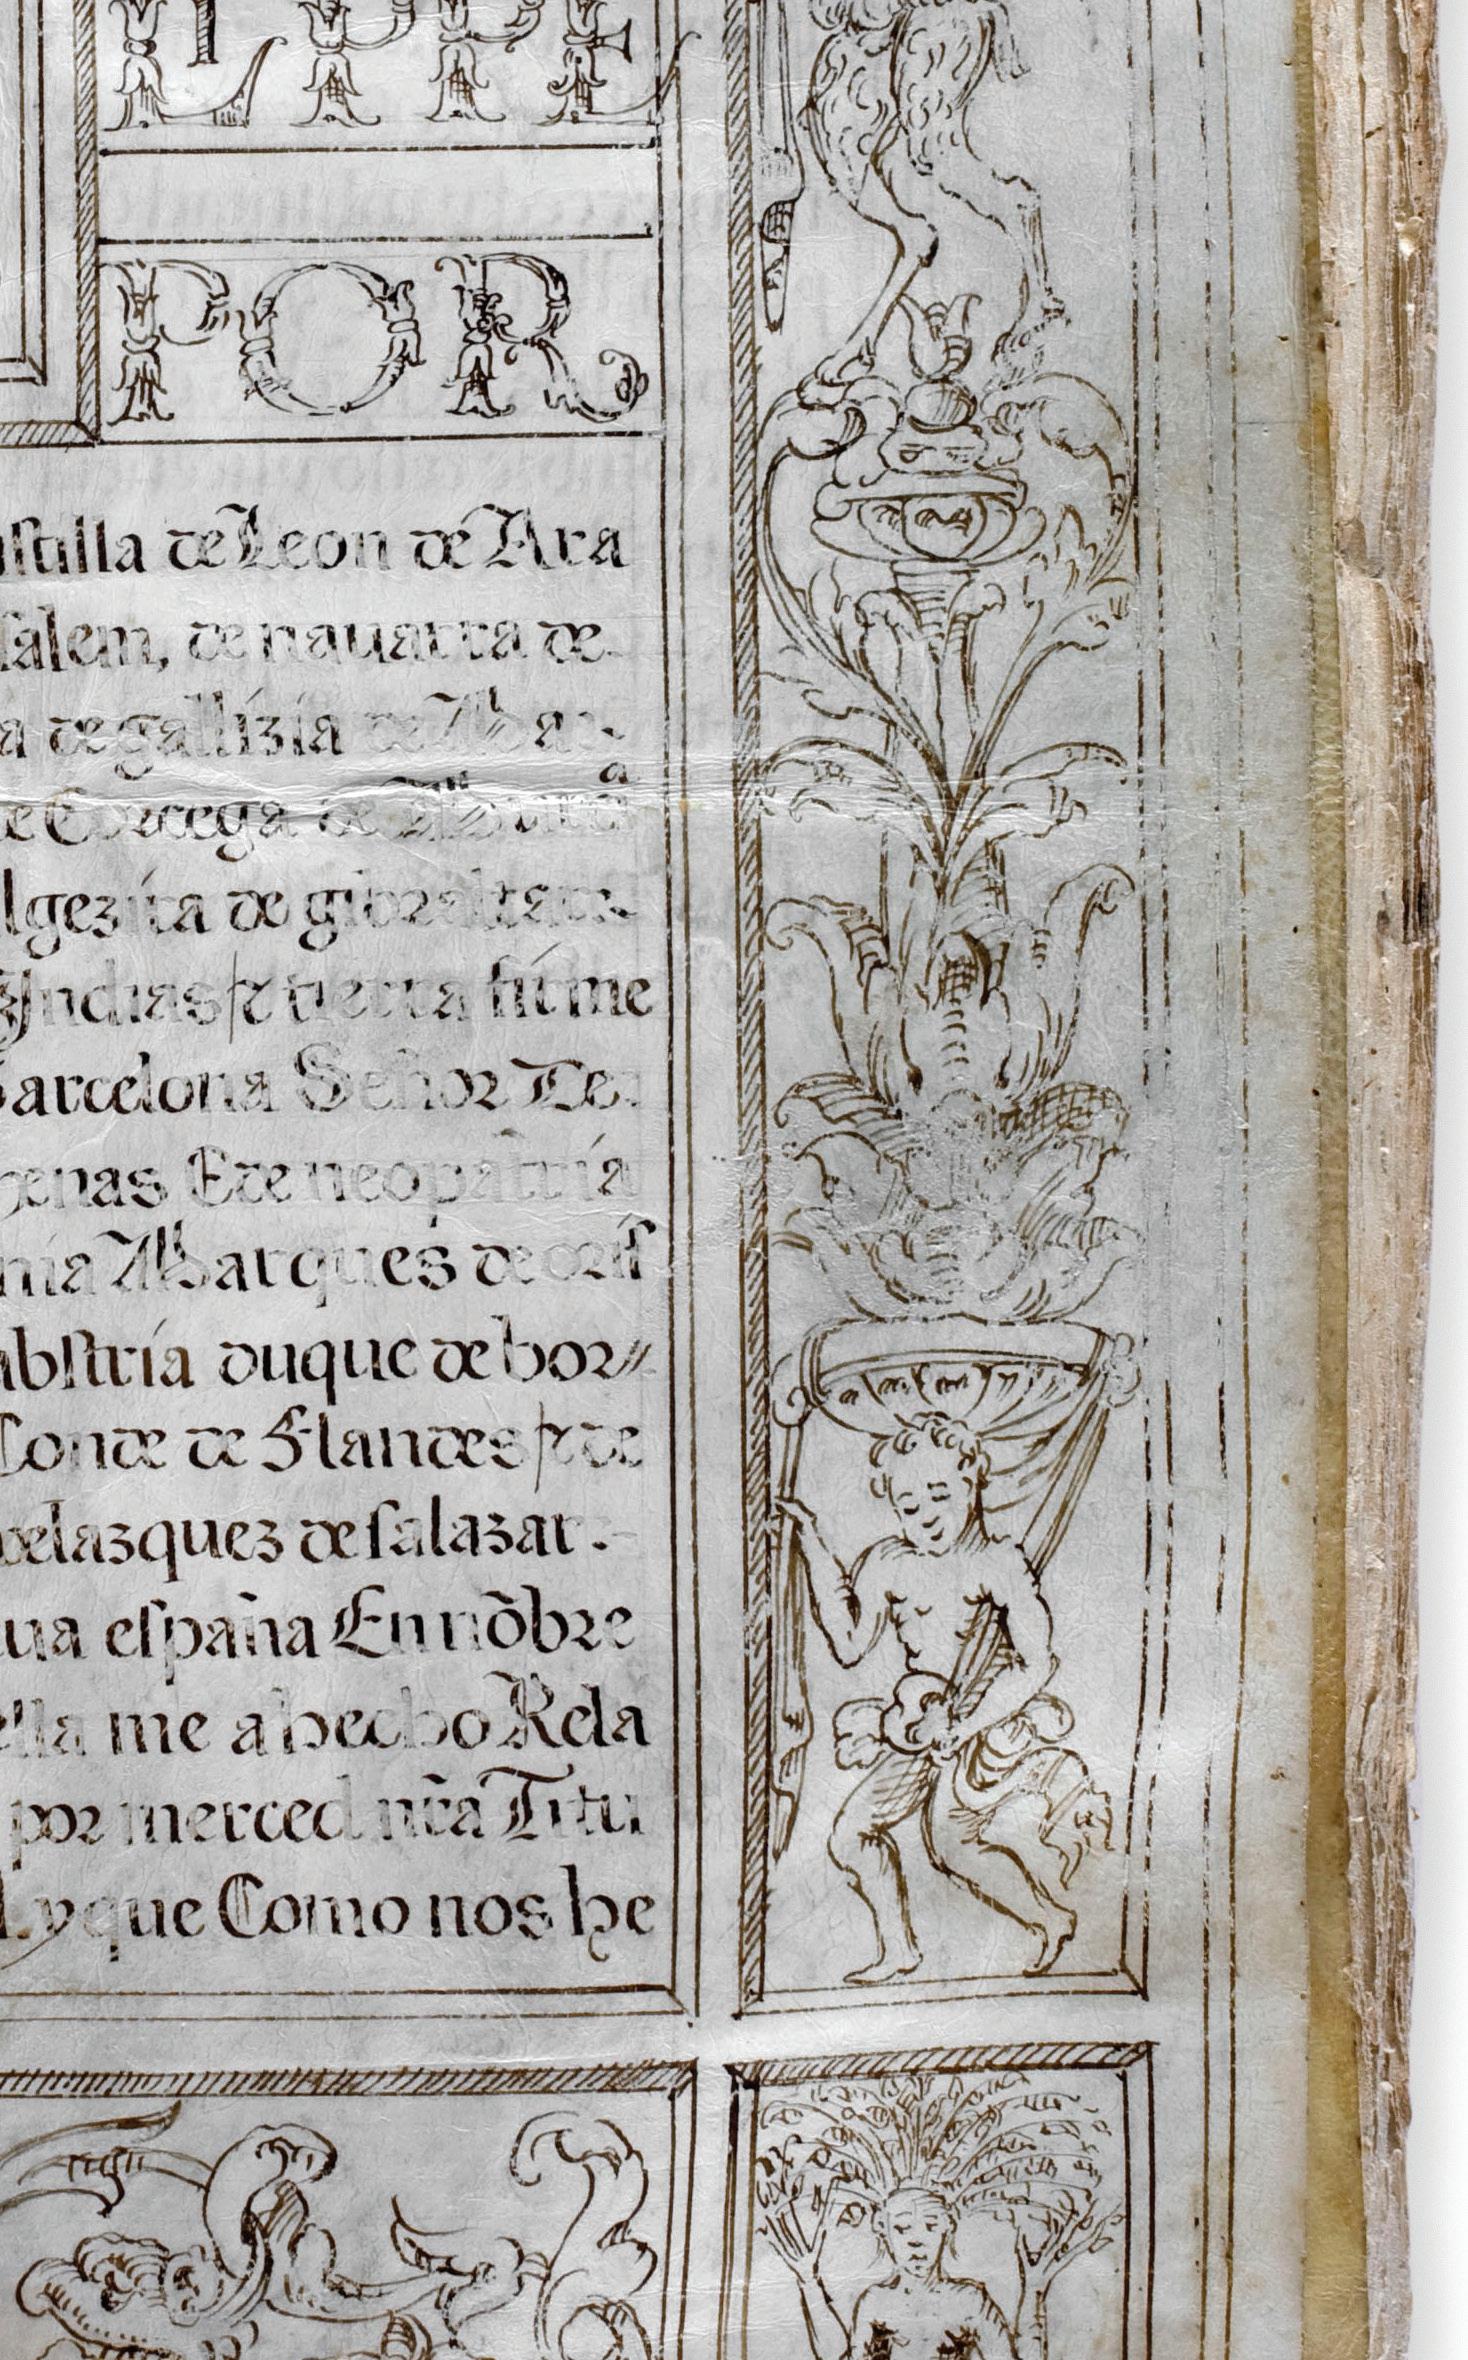 LIPE
POR
stilla de Leon de Ara
salem, de nauarra de
a de gallizia de Mar-
de gibraltar
Indias / e tierra firme
Barcelona Señor De
henas E de neopatria
nia Marques de oris
abstria duque de bor=
Conde de Flandes / e de
velazquez de salazar.
ua españa En nõbre
ella me a hecho Rela
por merced nrã Titu
l, y que Como nos he